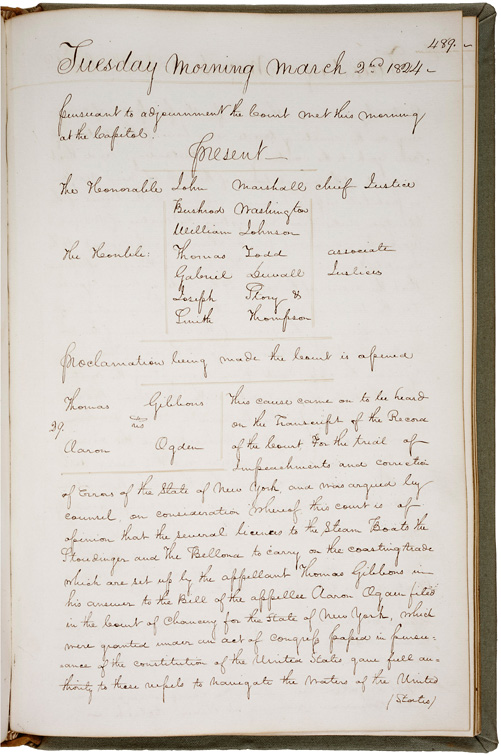 489.
Tuesday Morning March 2.d 1824
Pursuant to adjournment the Court met this morning
at the Capitol.
Present
The Honorable John Marshall chief Justice
Bushrod Washington
William Johnson
The Honble: Thomas Todd associate
Gabriel Duvall Justices
Joseph Story &
Smith Thompson
Proclamation being made the Court is opened
Thomas Gibbons
vs
29.
Aaron Ogden
This cause came on to be heard
on the Transcript of the Record
of the Court, For the trial of
Impeachments and correction
of Errors of the State of New York, and was argued by
counsel, on consideration whereof this court is of
opinion that the several licenses to the Steam Boats the
Stoudinger and The Bellona to carry on the coasting trade
which are set up by the appellant Thomas Gibbons in
his answer to the Bill of the appellee Aaron Ogden filed
in the Court of Chancery for the State of New York, which
were granted under an act of congress passed in pursu:
ance of the constitution of the United States gave full au-
thority to those vessels to navigate the waters of the United
(States)